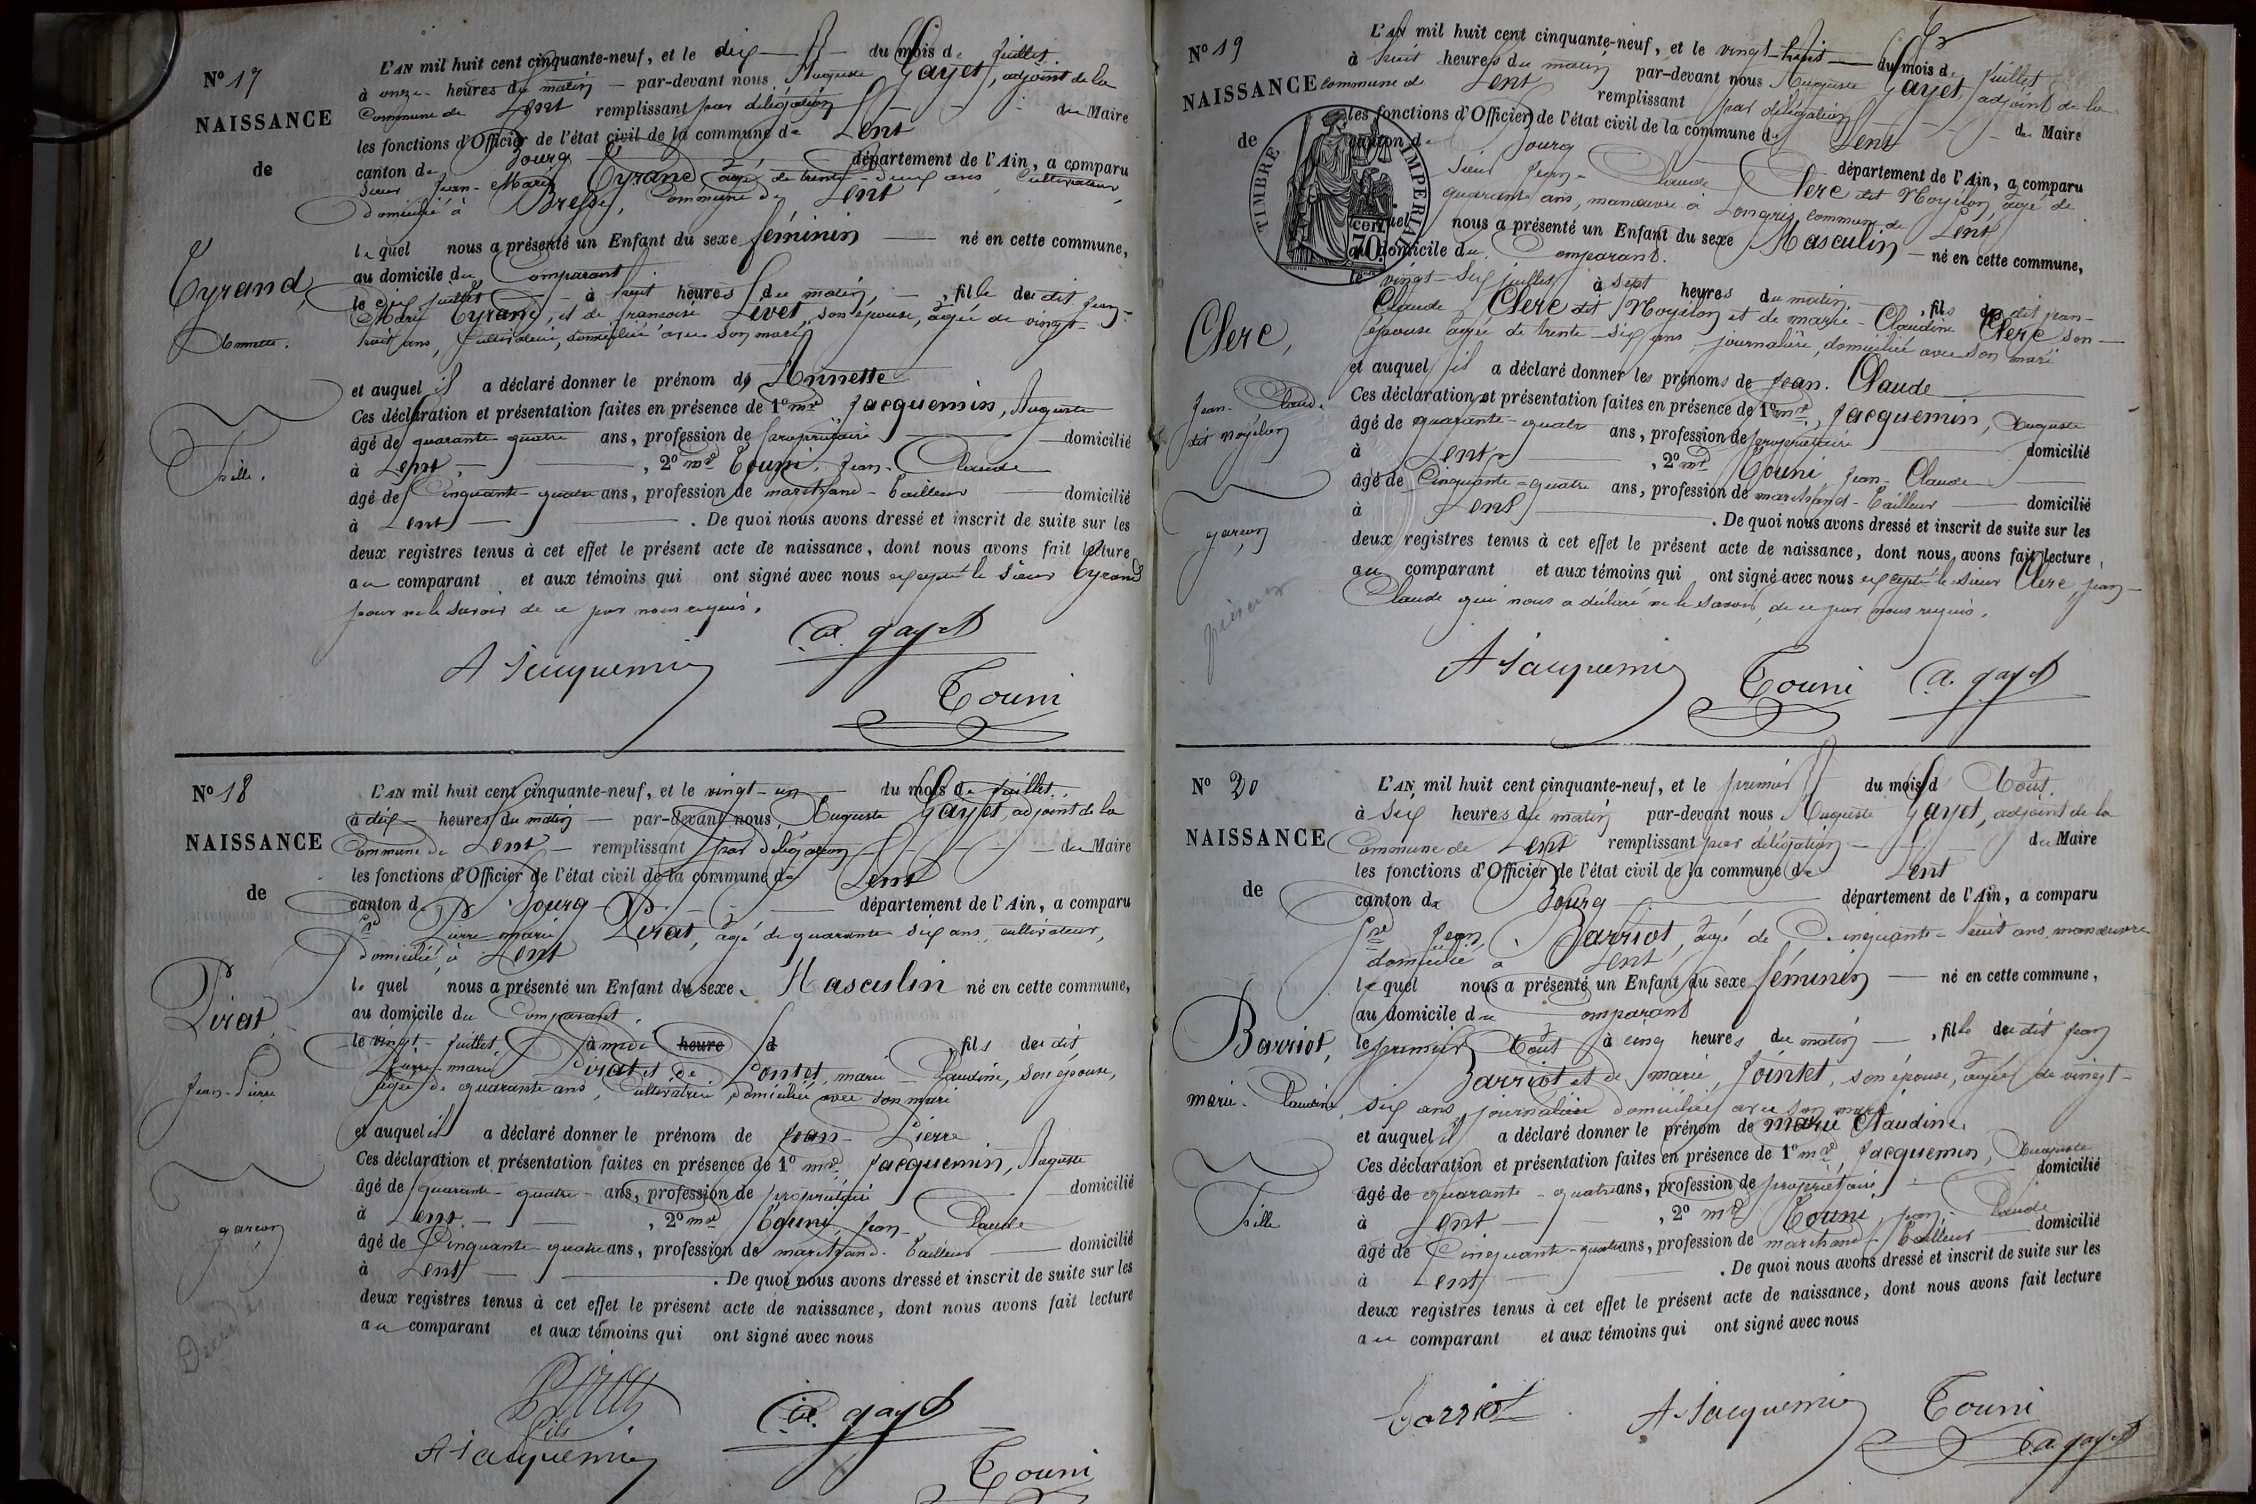 N° 17
NAISSANCE
de
Tyrand,
Annette.
Fille.
L'AN mil huit cent cinquante-neuf, et le dix du mois de juillet.
à onze heures du matin par-devant nous Auguste Gayet, adjoint de la
commune de Lent remplissant par délégation du Maire
les fonctions d'Officier de l'état civil de la commune de Lent
canton de Bourg département de l'Ain, a comparu
sieur Jean-Marie Tyrand âgé de trente-deux ans cultivateur,
domicilié à Bresse, commune de Lent
le quel nous a présenté un Enfant du sexe féminin né en cette commune,
au domicile du comparant
le dix juillet à huit heures du matin, fille du dit Jean-
Marie Tyrand, et de francoise Livet, son épouse, âgée de vingt-
huit ans, cultivatrice, domiciliée avec son mari
et auquel il a déclaré donner le prénom de Annette
Ces déclaration et présentation faites en présence de 1° mr Jacquemin, Auguste
âgé de quarante quatre ans, profession de propriétaire domicilié
à Lent, 2° mr Touni, Jean-Claude
âgé de Cinquante-quatre ans, profession de marchand-tailleur domicilié
à Lent . De quoi nous avons dressé et inscrit de suite sur les
deux registres tenus à cet effet le présent acte de naissance, dont nous avons fait lecture
au comparant et aux témoins qui ont signé avec nous excepté le sieur Tyrand
pour ne le savoir de ce par nous requis.
A Jacquemin
a. gayet
Touni
N° 18
NAISSANCE
de
Pirat,
Jean-Pierre
garçon
L'AN mil huit cent cinquante-neuf, et le vingt-un du mois de juillet.
à dix heures du matin par-devant nous Auguste Gayet, adjoint de la
Commune de Lent remplissant par délégation du Maire
les fonctions d'Officier de l'état civil de la commune de Lent
canton de Bourg département de l'Ain, a comparu
Sr Pierre-marie Pirat, âgé de quarante six ans, cultivateur,
domicilié à Lent
le quel nous a présenté un Enfant du sexe Masculin né en cette commune,
au domicile du Comparant
le vingt juillet à midi heure d fils du dit
Pierre-marie Pirat et de Pontet, marie-Claudine, son épouse,
âgée de quarante ans, cultivatrice, domiciliée avec son mari
et auquel il a déclaré donner le prénom de Jean-Pierre
Ces déclaration et présentation faites en présence de 1° mr Jacquemin, Auguste
âgé de quarante-quatre ans, profession de propriétaire domicilié
à Lent, 2° mr Touni, Jean-Claude
âgé de Cinquante-quatre ans, profession de marchand-tailleur domicilié
à Lent . De quoi nous avons dressé et inscrit de suite sur les
deux registres tenus à cet effet le présent acte de naissance, dont nous avons fait lecture
au comparant et aux témoins qui ont signé avec nous
Pirat
fils
A Jacquemin
a. gayet
Touni
N° 19
NAISSANCE
de
TIMBRE IMPERIAL
70 cent
Clerc,
Jean-Claude
dit moyilon
garçon
L'AN mil huit cent cinquante-neuf, et le vingt-huit du mois de juillet
à huit heures du matin par-devant nous Auguste Gayet, adjoint de la
commune de Lent remplissant par délégation du Maire
les fonctions d'Officier de l'état civil de la commune de Lent
canton de Bourg département de l'Ain, a comparu
sieur Jean-Claude Clerc dit Moyilon, âgé de
quarante ans, manœuvre à Longris, commune de Lent
lequel nous a présenté un Enfant du sexe Masculin né en cette commune,
au domicile du comparant.
le vingt-six juillet à sept heures du matin, fils du dit jean-
Claude Clerc dit Moyilon et de marie-Claudine Clerc son
épouse âgée de trente-six ans, journalière, domiciliée avec son mari
et auquel il a déclaré donner les prénoms de Jean-Claude
Ces déclaration et présentation faites en présence de 1° mr, Jacquemin, Auguste
âgé de quarante-quatre ans, profession de propriétaire domicilié
à Lent, 2° mr Touni Jean-Claude
âgé de Cinquante-quatre ans, profession de marchand-tailleur domicilié
à Lent . De quoi nous avons dressé et inscrit de suite sur les
deux registres tenus à cet effet le présent acte de naissance, dont nous avons fait lecture
au comparant et aux témoins qui ont signé avec nous excepté le sieur Clerc, jean-
Claude qui nous a déclaré ne le savoir, de ce par nous requis.
A Jacquemin
Touni
a. gayet
N° 20
NAISSANCE
de
Barriot,
marie-Claudine,
Fille
L'AN mil huit cent cinquante-neuf, et le premier du mois d'Août.
à six heures du matin par-devant nous Auguste Gayet, adjoint de la
Commune de Lent remplissant par délégation du Maire
les fonctions d'Officier de l'état civil de la commune de Lent
canton de Bourg département de l'Ain, a comparu
Sr Jean Barriot, âgé de Cinquante-huit ans, manœuvre
domicilié à Lent
le quel nous a présenté un Enfant du sexe féminin né en cette commune,
au domicile du comparant
le premier Août à cinq heures du matin, fille du dit jean
Barriot et de marie, Jointet, son épouse, âgée de vingt-
six ans, journalière domiciliée avec son mari
et auquel il a déclaré donner le prénom de marie Claudine.
Ces déclaration et présentation faites en présence de 1° mr Jacquemin, Auguste
âgé de quarante-quatre ans, profession de propriétaire domicilié
à Lent, 2° mr Touni, jean-Claude
âgé de Cinquante-quatre ans, profession de marchand-tailleur domicilié
à Lent . De quoi nous avons dressé et inscrit de suite sur les
deux registres tenus à cet effet le présent acte de naissance, dont nous avons fait lecture
au comparant et aux témoins qui ont signé avec nous
barriot
A Jacquemin
Touni
a. gayet